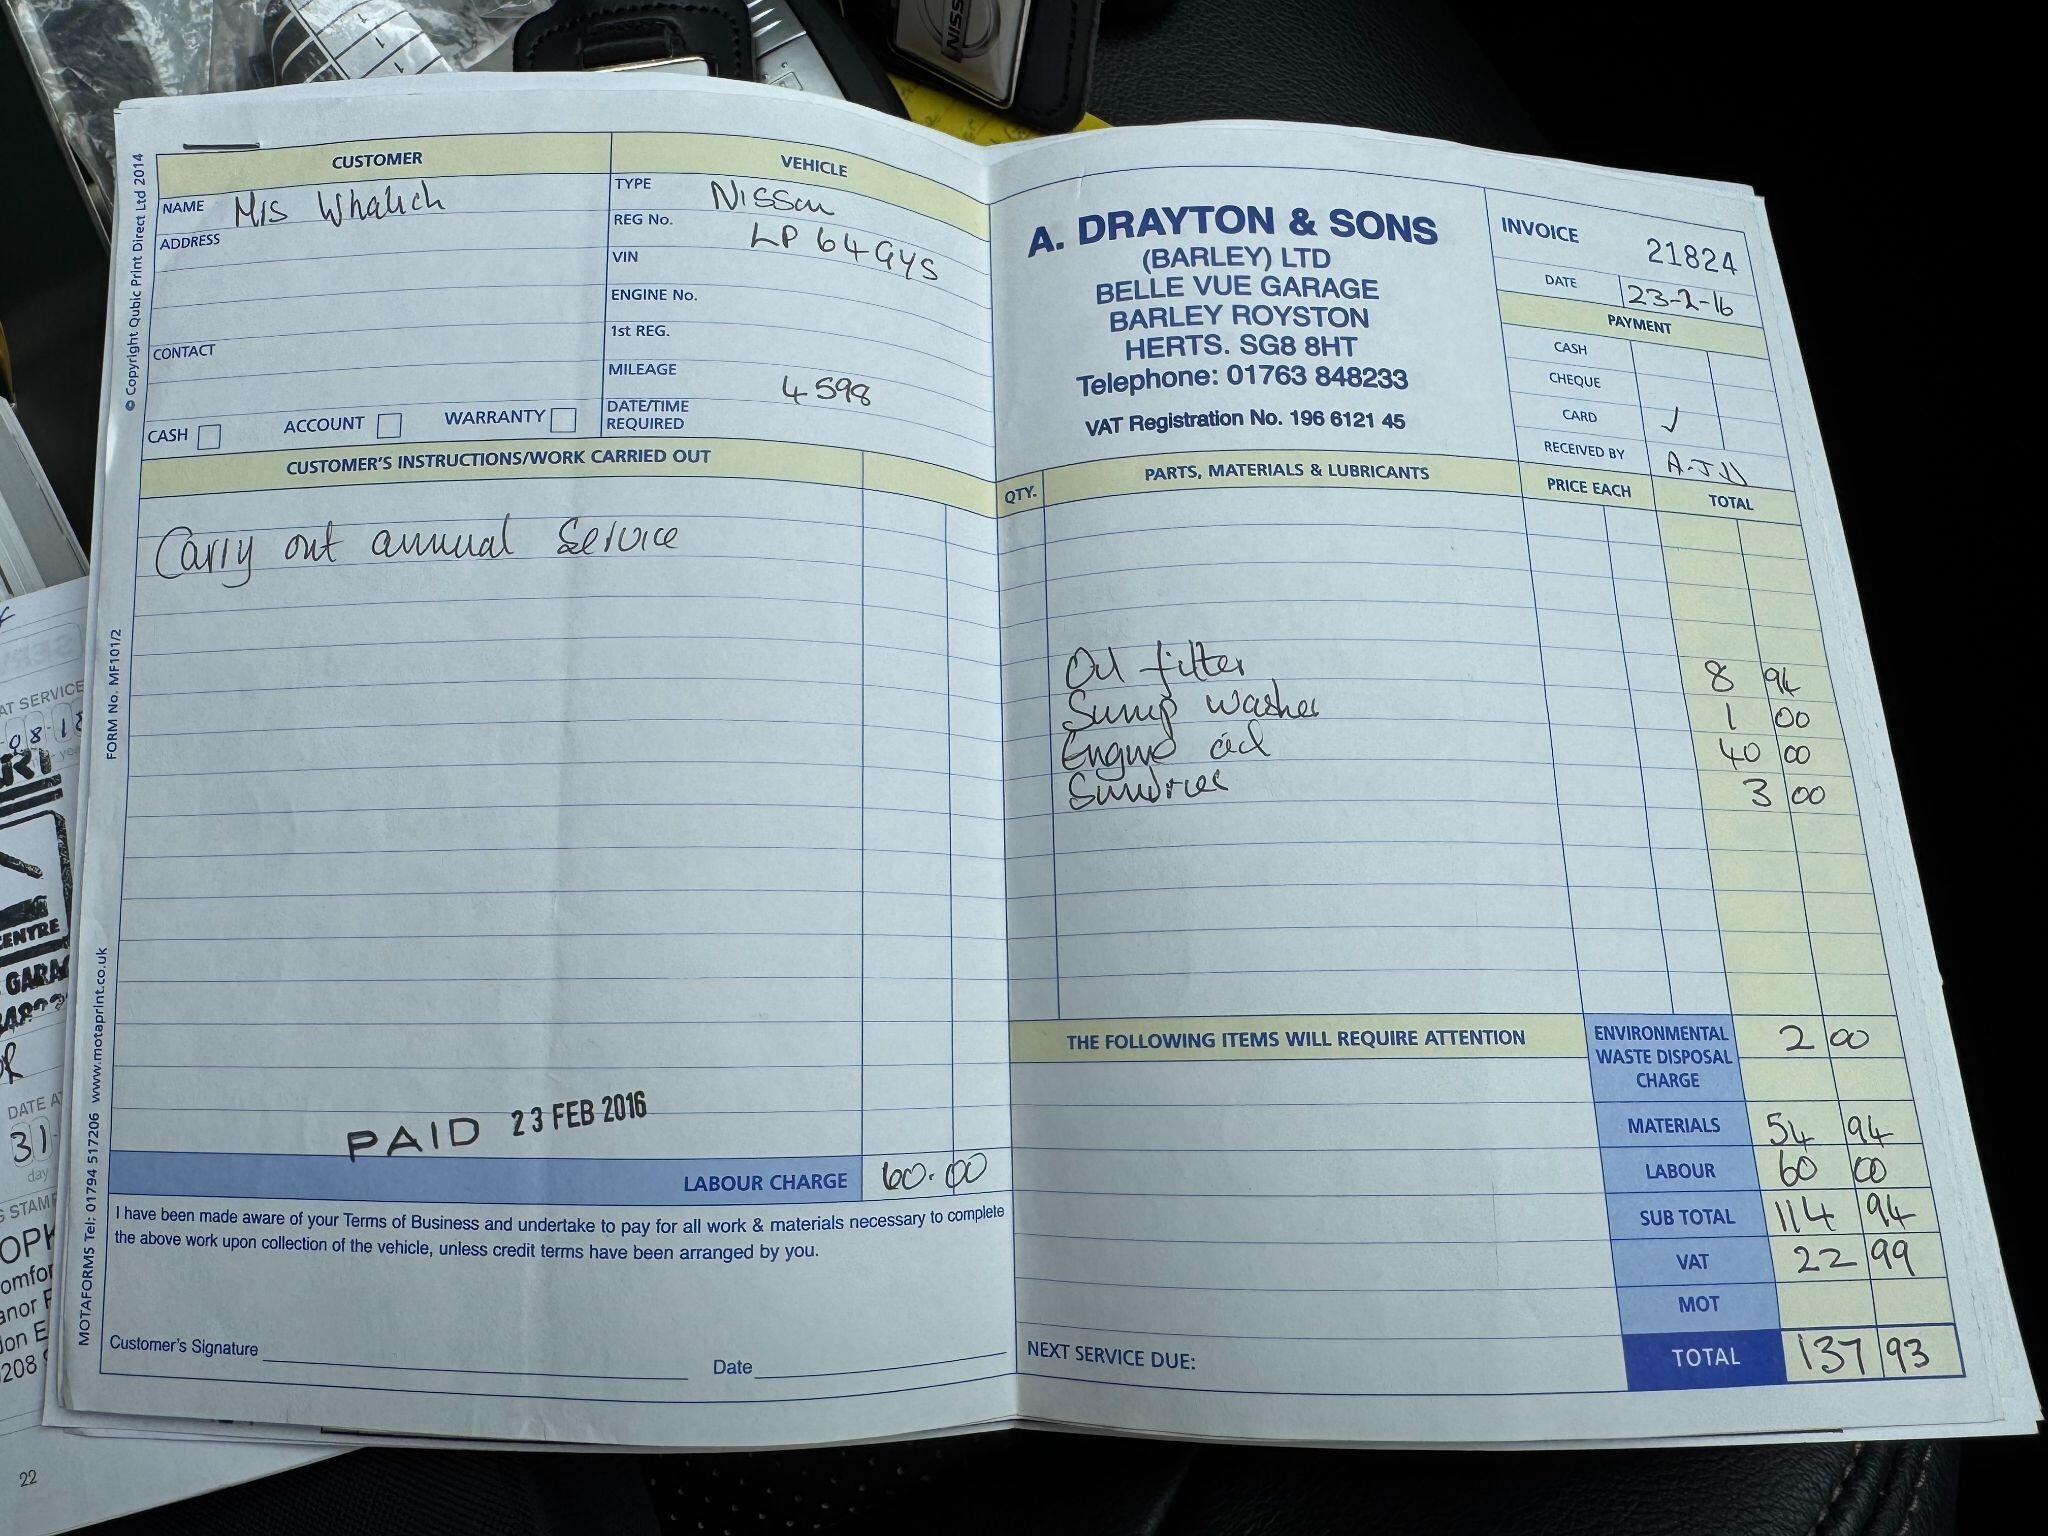 CUSTOMER
VEHICLE
NAME Mrs Whalich
ADDRESS
CONTACT
CASH ACCOUNT WARRANTY
TYPE Nissan
REG No. LP 64 GYS
VIN
ENGINE No.
1st REG.
MILEAGE 4598
DATE/TIME
REQUIRED
CUSTOMER'S INSTRUCTIONS/WORK CARRIED OUT
Carry out annual Service
PAID 23 FEB 2016
LABOUR CHARGE 60.00
I have been made aware of your Terms of Business and undertake to pay for all work & materials necessary to complete
the above work upon collection of the vehicle, unless credit terms have been arranged by you.
Customer's Signature Date
© Copyright Qubic Print Direct Ltd 2014
FORM No. MF101/2
MOTAFORMS Tel: 01794 517206 www.motaprint.co.uk
A. DRAYTON & SONS
(BARLEY) LTD
BELLE VUE GARAGE
BARLEY ROYSTON
HERTS. SG8 8HT
Telephone: 01763 848233
VAT Registration No. 196 6121 45
INVOICE 21824
DATE 23-2-16
PAYMENT
CASH
CHEQUE
CARD ✓
RECEIVED BY A.J.D
QTY. PARTS, MATERIALS & LUBRICANTS PRICE EACH TOTAL
Oil filter 8 94
Sump washer 1 00
Engine oil 40 00
Sundries 3 00
THE FOLLOWING ITEMS WILL REQUIRE ATTENTION
ENVIRONMENTAL
WASTE DISPOSAL
CHARGE 2 00
MATERIALS 54 94
LABOUR 60 00
SUB TOTAL 114 94
VAT 22 99
MOT
NEXT SERVICE DUE:
TOTAL 137 93
NISS
AT SERVICE
08-18
CENTRE
GARA
DATE A
31
day
STAMP
22